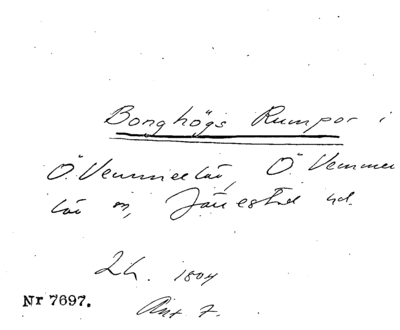 Bonghögs Rumpor i
Ö. Vemmerlöv, Ö Vemmer
löv sn, Järrestad hd.
Lh. 1804
Nr 7697.
Akt 7.